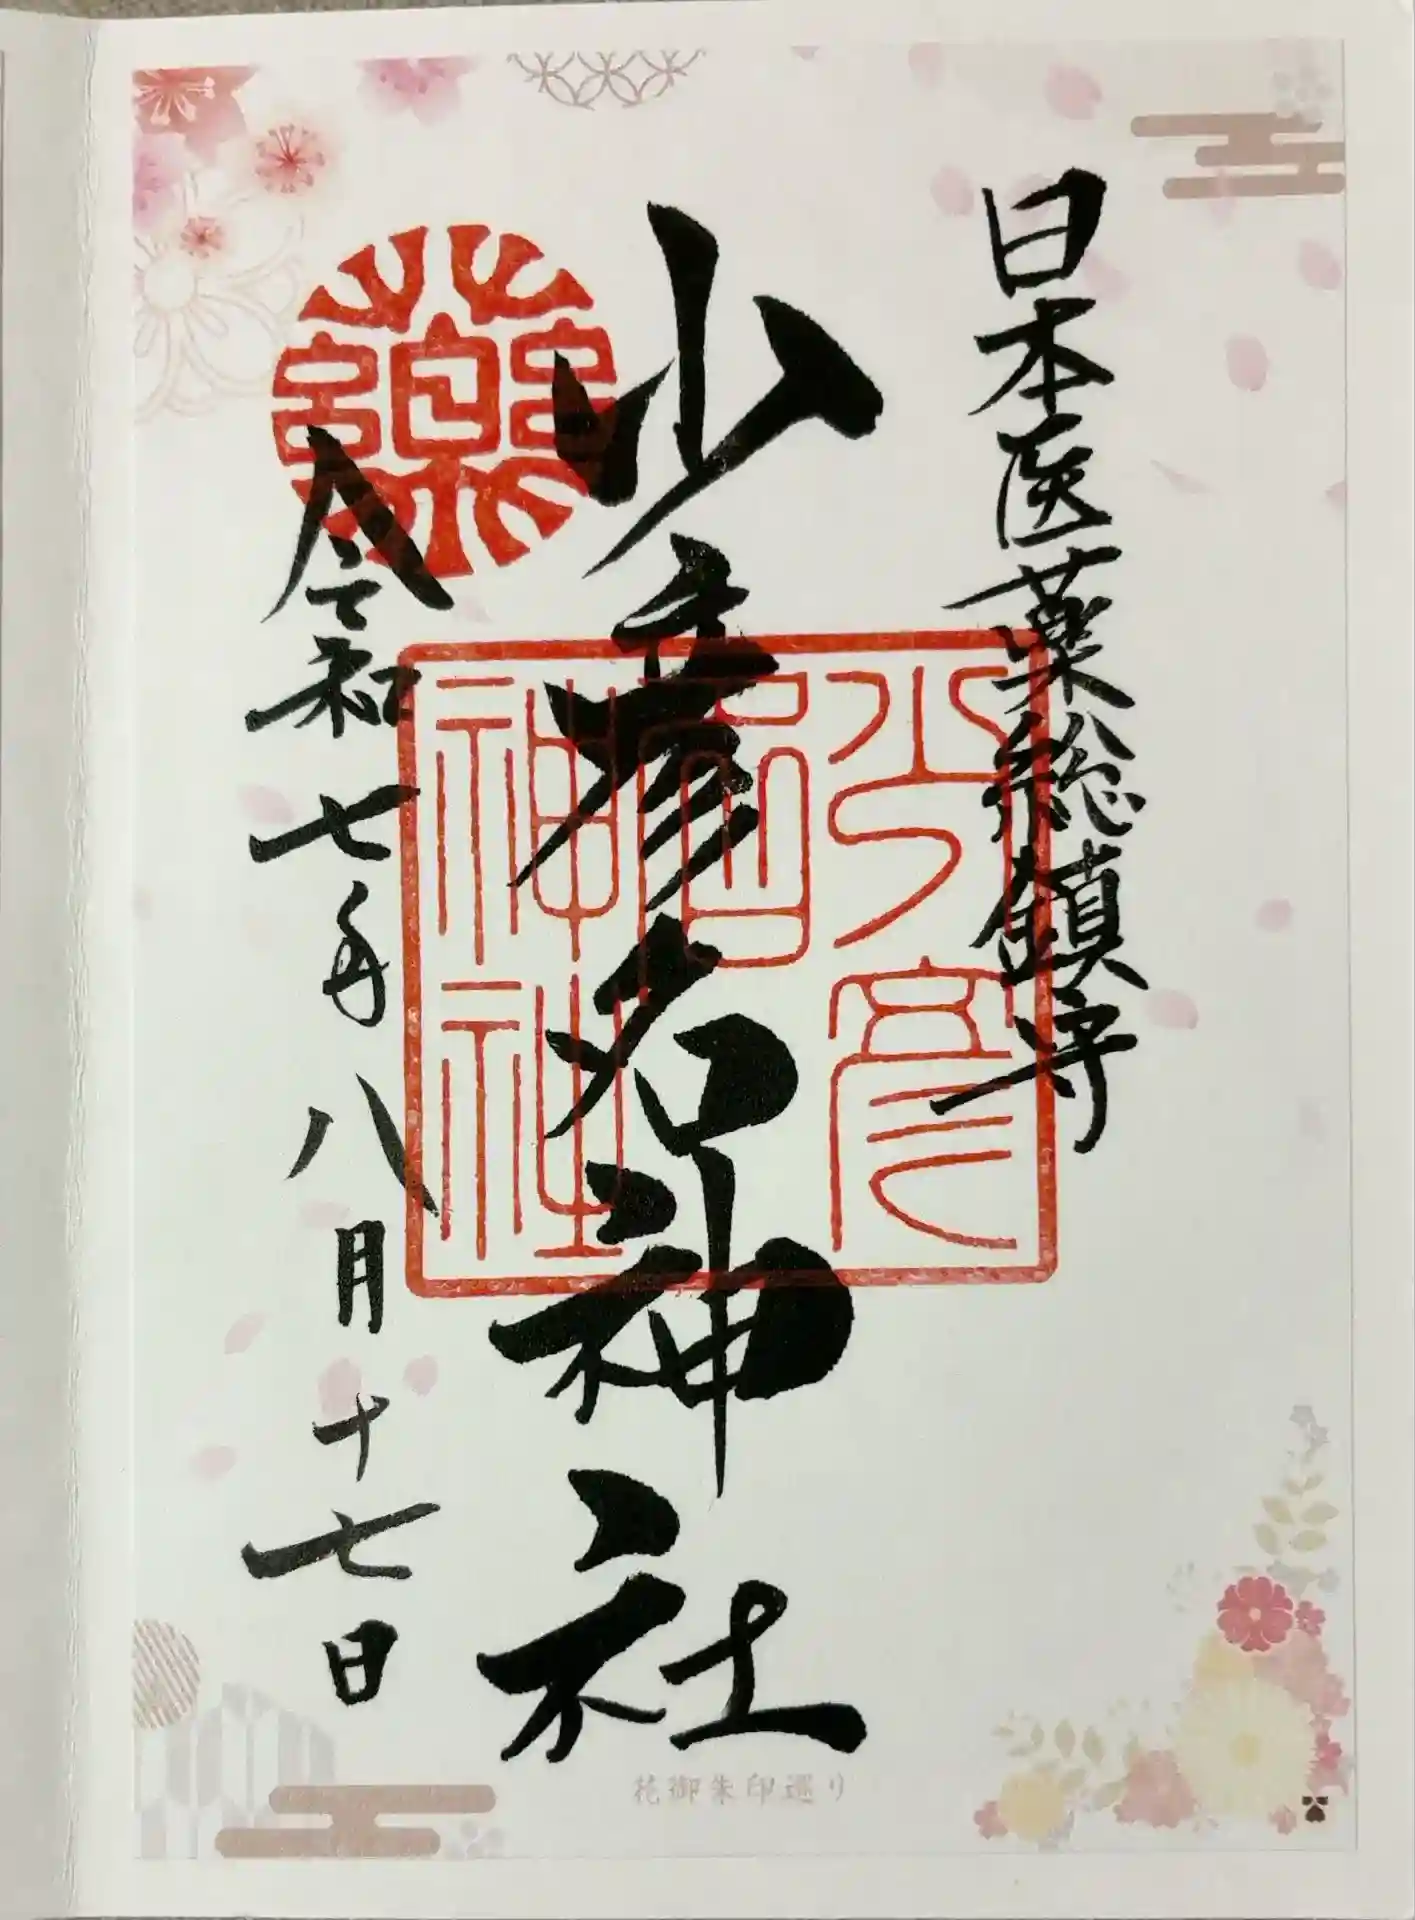 日本医薬総鎮守
少彦名神社
令和七年八月十七日
藥
少彦
名
神社
花御朱印巡り